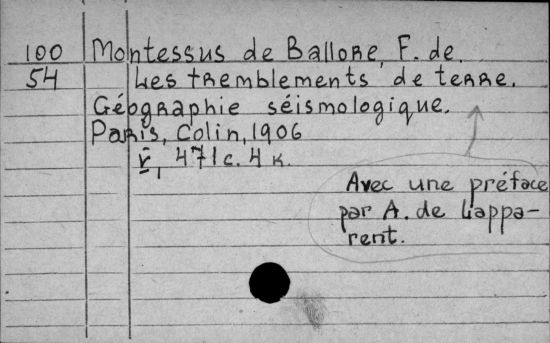 100 Montessus de Ballore, F. de.
54 Les tremblements de terre.
Géographie séismologique.
Paris, Colin, 1906
v, 471c. 4 к.
Avec une préface
par A. de Lappa-
rent.